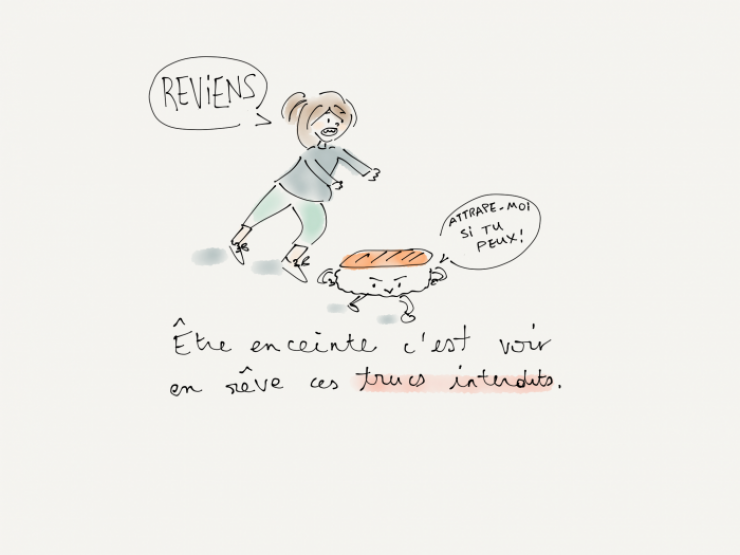 REViENS
ATTRAPE-MOi
Si TU
PEUX!
Être enceinte c'est voir
en rêve ces trucs interdits.